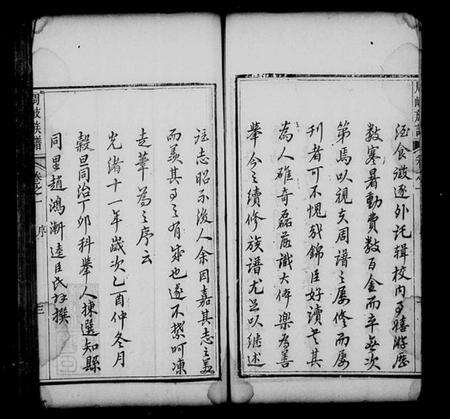 酒食徵逐外託輯校内事嬉遊歷
數寒暑動費數百金而卒無次
第焉以視支周譜之屢修而屢
刊者可不愧哉錦臣好讀書其
為人雄奇磊落識大体樂為善
舉今之續修族譜尤足以継述
論志昭示後人余因嘉其志之美
而羨其事之有成也遂不禁呵凍
走筆為之序云
光緒十一年歲次乙酉仲冬月
穀旦同治丁卯科舉人揀選知縣
同里趙鴻漸逵臣氏拜撰
族譜
卷之一
序
三